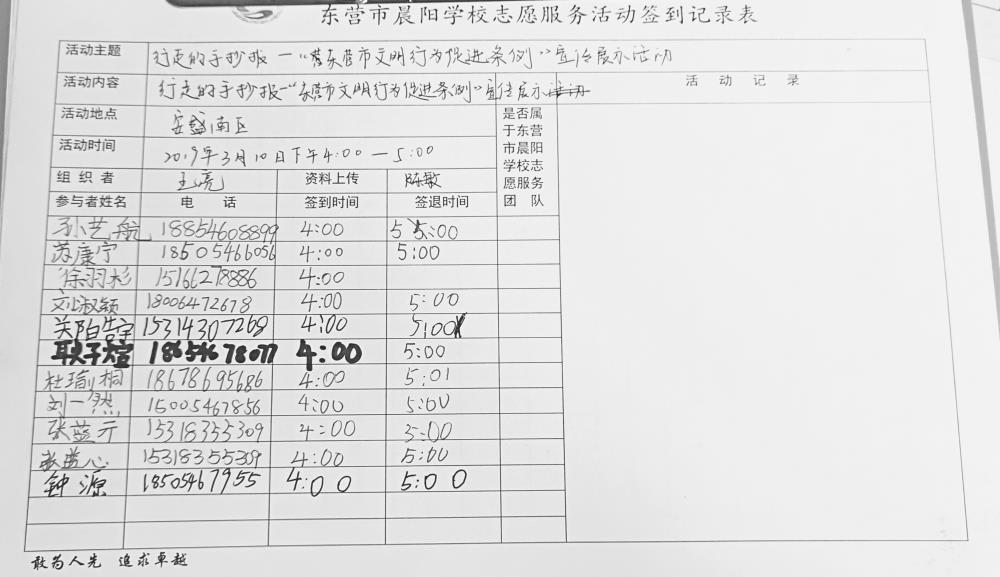 东营市晨阳学校志愿服务活动签到记录表
活动主题 行走的手抄报一“营东营市文明行为促进条例”宣传展示活动
活动内容 行走的手抄报一“东营市文明行为促进条例”宣传展示活动 活 动 记 录
活动地点 安盛南区 是否属于东营市晨阳学校志愿服务团 队
活动时间 2019年3月10日下午4:00—5:00
组 织 者 王亮 资料上传 陈敏
参与者姓名 电 话 签到时间 签退时间
孙艺航 18854608899 4:00 5 5:00
苏康宁 18505466056 4:00 5:00
徐羽杉 15166278886 4:00
刘淑颖 18006472678 4:00 5:00
关阳浩宇 15314307268 4:00 5:00
耿子煊 18654678077 4:00 5:00
杜瑜桐 18678695686 4:00 5:01
刘一然 15005467856 4:00 5:00
张蓝亓 15318355309 4:00 5:00
张蓝心 15318355309 4:00 5:00
钟源 18505467955 4:00 5:00
敢为人先 追求卓越